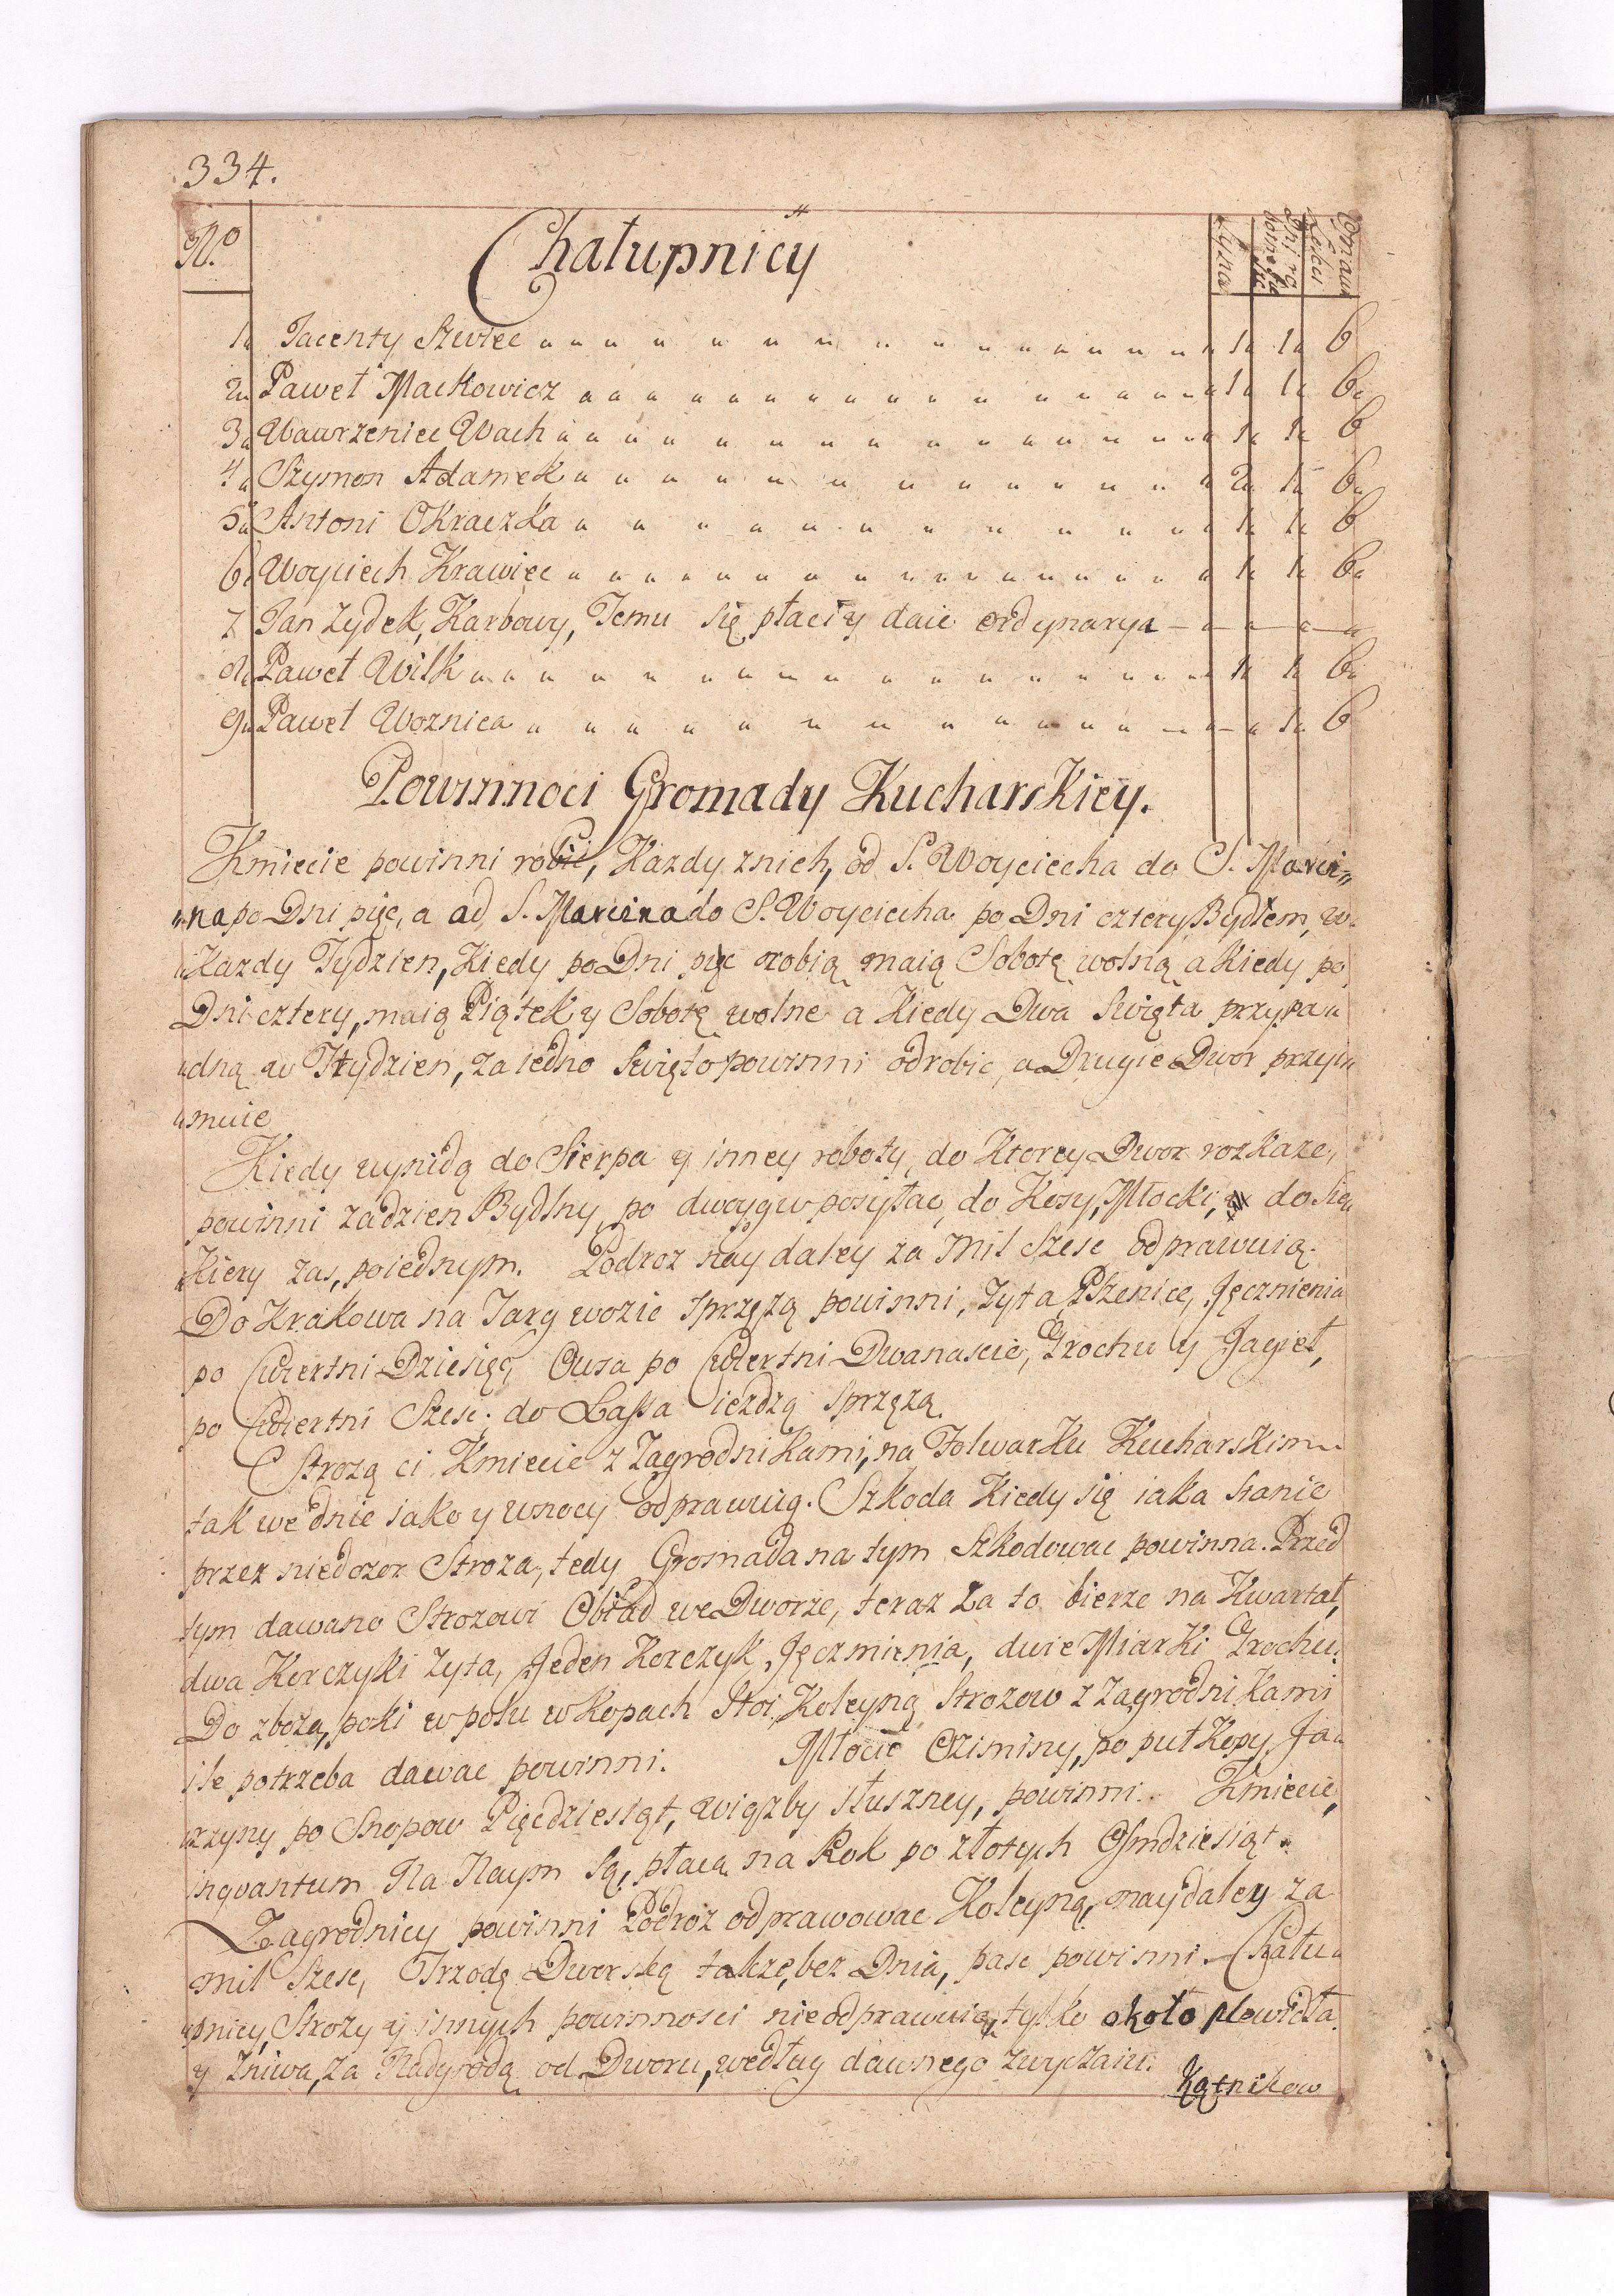 334.
No Chałupnicy
1 Jacenty Szwiec 1 1 6
2 Paweł Mackowicz 1 1 6
3 Wawrzeniec Wach 1 1 6
4 Szymon Adamek 2 1 6
5 Antoni Okraczka 1 1 6
6 Woyciech Krawiec 1 1 6
7 Jan Zydek, Karbowy, Temu się płaci y daie ordynarya
8 Paweł Wilk 1 1 6
9 Paweł Woznica 1 6
Powinnoci Gromady Kucharskiey.
Kmiecie powinni robić, Kazdy znich, od S. Woyciecha do S. Marci„
„na po Dni pięc, a od S. Marcina do S. Woyciecha po Dni cztery Bydłem, w
Kazdy Tydzien, Kiedy po Dni pięc robią maią Sobotę wolną a Kiedy po
Dni cztery, maią Piątek y Sobotę wolne a Kiedy Dwa Swięta przypa„
„dną w Tydzien, za iedno Swięto powinni odrobic, a Drugie Dwor przyi„
„muie
Kiedy wynidą do Sierpa y inney roboty, do Ktorey Dwor rozkaze,
powinni zadzien Bydlny, po dwoygw posyłac, do Kosy, Młocki, do Sie„
„Kiery zas, poiednym. Podroz naydaley za Mil Szesc odprawuią.
Do Krakowa na Targ wozic Sprzężą powinni, Zyta Pszenicę, Jęcznienia
po Cwiertni Dziesięc, Owsa po Cwiertni Dwanascie, Grochu y Jagieł,
po Cwiertni Szesc. do Lassa iezdzą Sprzęzą.
Strozą ci Kmiecie z Zagrodnikami, na Folwarku Kucharskim
tak we dnie iako y wnocy odprawuią. Szkoda Kiedy się iaka stanie
przez niedozor Stroza, tedy Gromada na tym Szkodowac powinna. Przed
tym dawano Strozowi Obiad we Dworze, teraz Za to bierze na Kwartał,
dwa Korczyki Zyta, Jeden Korczyk Jęczmienia, dwie Miarki Grochu.
Do zboza, poki w polu w Kopach Stoi, Koleyną Strozow z Zagrodnikami
ile potrzeba dawac powinni. Młocic Oziminy, po puł Kopy, Ja„
rzyny po Snopow Pięcdziesiąt, więzby słuszney, powinni. Kmiecie,
inqvantum Na Naym są, płacą na Rok po złotych Osmdziesiąt.
Zagrodnicy powinni Podroz odprawowac Koleyną, naydaley za
mil Szesc, Trzodę Dworską takze, bez Dnia, pasc powinni. Chału„
„pnicy, Strozy y innych powinnosci nieodprawuią, tylko około plewidła
y Zniwa, za Nadgrodą od Dworu, według dawnego zwyczaiu.
Kątnikow